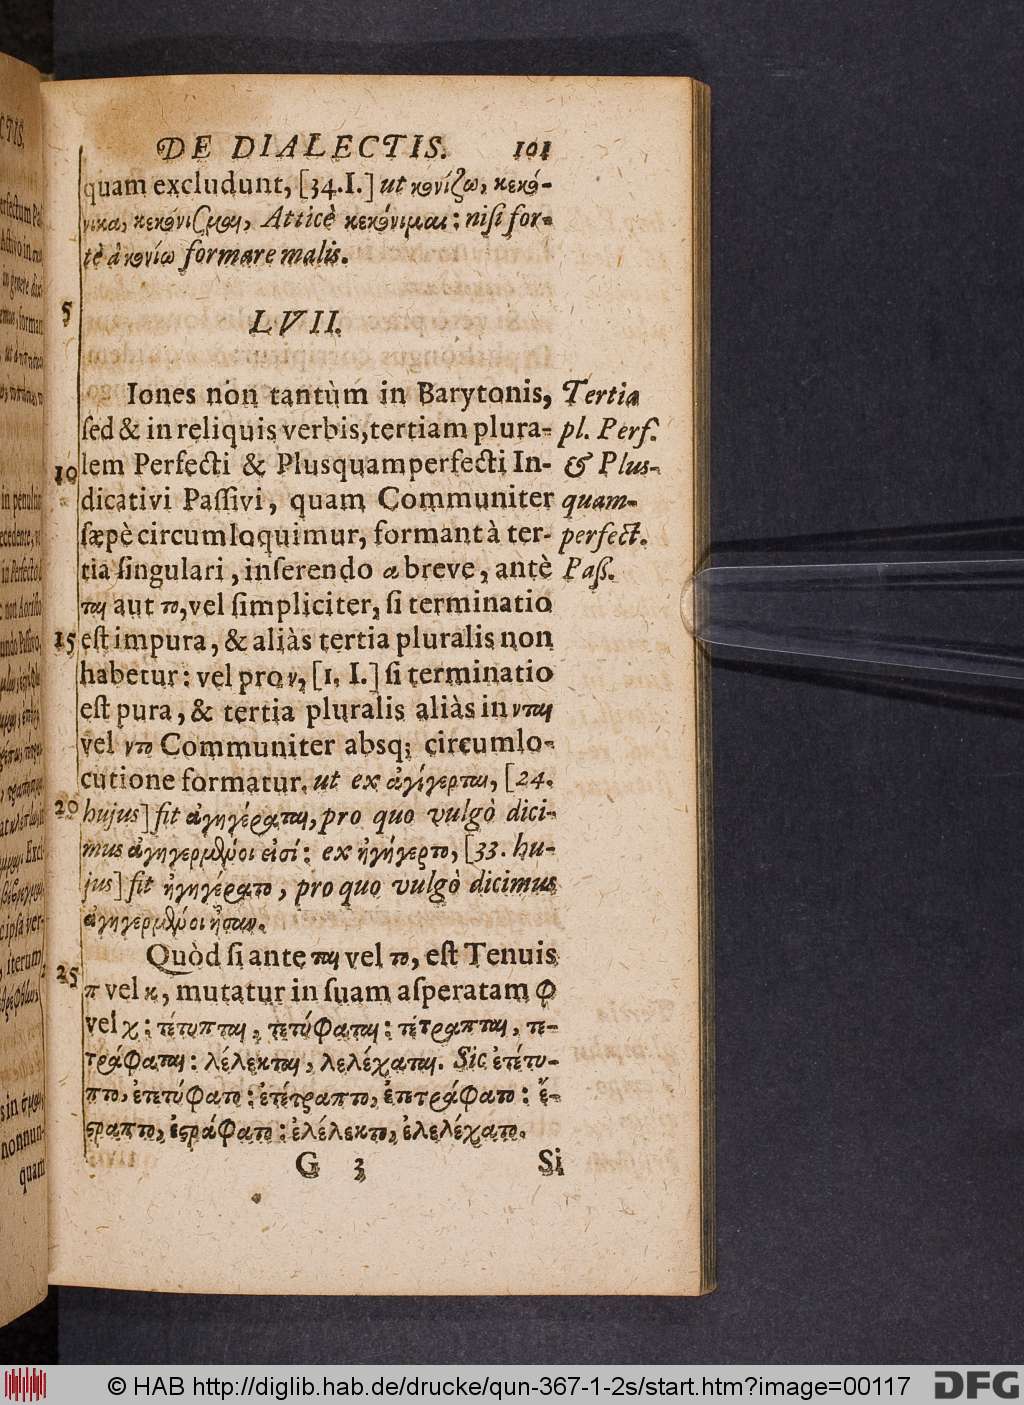 DE DIALECTIS. 101
quam excludunt, [34.I.] ut κονίζω, κεκό-
νικα, κεκόνισμαι, Atticè κεκόνιμαι: nisi for-
tè à κονίω formare malis.
5
LVII.
Iones non tantùm in Barytonis,
sed & in reliquis verbis, tertiam plura-
lem Perfecti & Plusquamperfecti In-
dicativi Passivi, quam Communiter
sæpè circumloquimur, formant à ter-
tia singulari, inserendo α breve, antè
ται aut το, vel simpliciter, si terminatio
est impura, & aliàs tertia pluralis non
habetur: vel pro ν, [1. I.] si terminatio
est pura, & tertia pluralis aliàs in νται
vel ντο Communiter absq; circumlo-
cutione formatur. ut ex ἀγήγερται, [24.
hujus] fit ἀγηγέραται, pro quo vulgò dici-
mus ἀγηγερμένοι εἰσί: ex ἠγήγερτο, [33. hu-
jus] fit ἠγηγέρατο, pro quo vulgò dicimus
ἀγηγερμένοι ἦσαν.
Quòd si ante ται vel το, est Tenuis
π vel κ, mutatur in suam asperatam φ
vel χ: τέτυπται, τετύφαται: τέτραπται, τε-
τράφαται: λέλεκται, λελέχαται. Sic ἐτέτυ-
πτο, ἐτετύφατο: ἐτέτραπτο, ἐτετράφατο: ἔ-
στραπτο, ἐστράφατο: ἐλέλεκτο, ἐλελέχατο.
G 3 Si
10
15
20
25
Tertia
pl. Perf.
& Plus-
quam-
perfect.
Pass.
© HAB http://diglib.hab.de/drucke/qun-367-1-2s/start.htm?image=00117
DFG